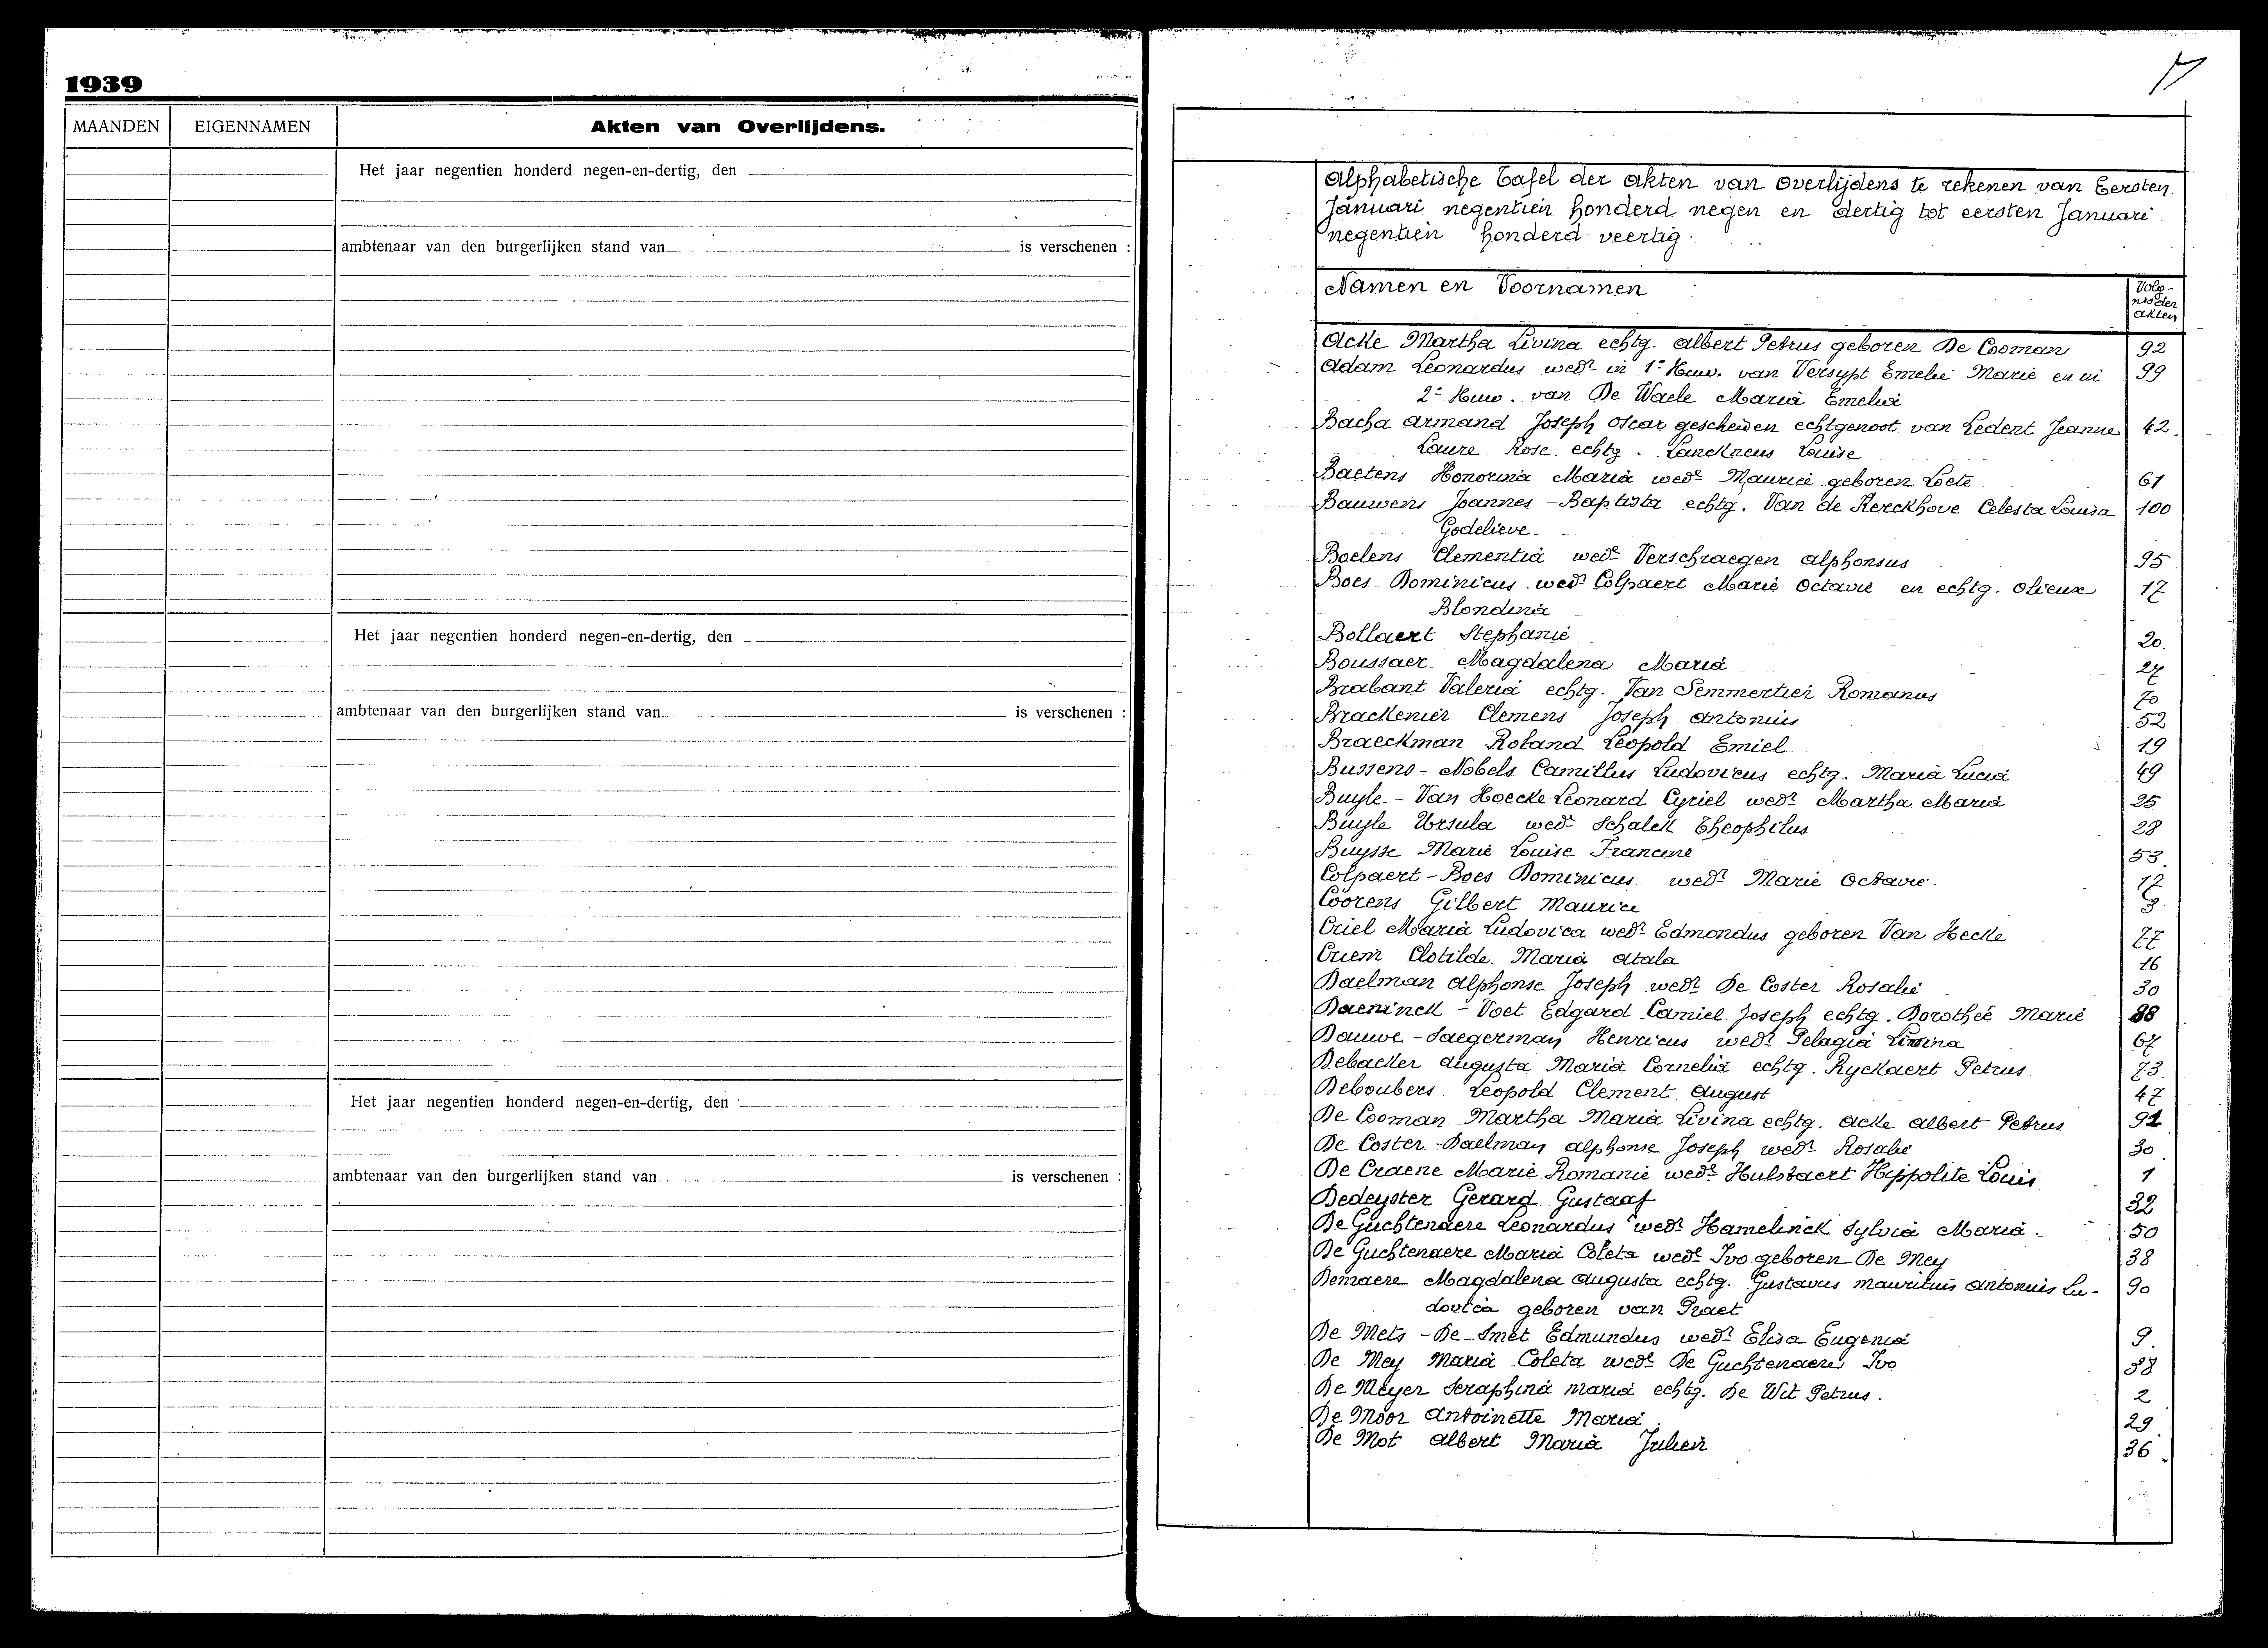 1939
MAANDEN EIGENNAMEN Akten van Overlijdens.
Het jaar negentien honderd negen-en-dertig, den
ambtenaar van den burgerlijken stand van is verschenen :
Het jaar negentien honderd negen-en-dertig, den
ambtenaar van den burgerlijken stand van is verschenen :
Het jaar negentien honderd negen-en-dertig, den
ambtenaar van den burgerlijken stand van is verschenen :
Alphabetische Tafel der akten van overlijdens te rekenen van Eersten
Januari negentien honderd negen en dertig tot eersten Januari
negentien honderd veertig.
Namen en Voornamen Volg-
nrs der
akten
Acke Martha Livina echtg. Albert Petrus geboren De Cooman 92
Adam Leonardus wedr in 1e Huw. van Versypt Emelie Marie en in 99
2e Huw. van De Waele Maria Emelia
Bacha Armand Joseph Oscar gescheiden echtgenoot van Ledent Jeanne 42.
Laure Rose echtg. Lanckneus Louise
Baetens Honorina Maria wede Maurice geboren Loete 61
Bauwens Joannes-Baptista echtg. Van de Kerckhove Celesta Louisa 100
Godelieve
Boelens Clementia wede Verschraegen Alphonsus 95
Boes Dominicus wedr Colpaert Marie Octavie en echtg. Olieux 17
Blondina
Bollaert Stephanie 20.
Boussaer Magdalena Maria 27
Brabant Valeria echtg. Van Semmertier Romanus 70
Brackenier Clemens Joseph Antonius 52
Braeckman Roland Leopold Emiel 19
Bussens-Nobels Camillus Ludovicus echtg. Maria Lucia 49
Buyle-Van Hoecke Leonard Cyriel wedr Martha Maria 25
Buyle Ursula wede Schalck Theophilus 28
Buysse Marie Louise Francine 53.
Colpaert-Boes Dominicus wedr Marie Octavie. 17
Coorens Gilbert Maurice 3
Criel Maria Ludovica wede Edmondus geboren Van Hecke 77
Criem Clotilde Maria Atala 16
Daelman Alphonse Joseph wedr De Coster Rosalie 30
Daeninck-Voet Edgard Camiel Joseph echtg. Dorothée Marie 88
Dauwe-Saegerman Henricus wedr Pelagia Livina 67
Debacker Augusta Maria Cornelia echtg. Ryckaert Petrus 73.
Deboubers Leopold Clement August 47
De Cooman Martha Maria Livina echtg. Acke Albert Petrus 92
De Coster-Daelman Alphonse Joseph wedr Rosalie 30
De Craene Marie Romanie wede Hulstaert Hippolite Louis 1
Dedeyster Gerard Gustaaf 32
De Guchtenaere Leonardus wedr Hamelinck Sylvia Maria. 50
De Guchtenaere Maria Coleta wede Ivo geboren De Mey 38
Demaere Magdalena Augusta echtg. Gustavus Mauritius Antonius Lu- 90
dovica geboren van Praet
De Mets-De Smet Edmundus wedr Elisa Eugenia 9.
De Mey Maria Coleta wede De Guchtenaere Ivo 38
De Meyer Seraphina Maria echtg. De Wit Petrus. 2
De Moor Antoinette Maria 29
De Mot Albert Maria Julien 36.